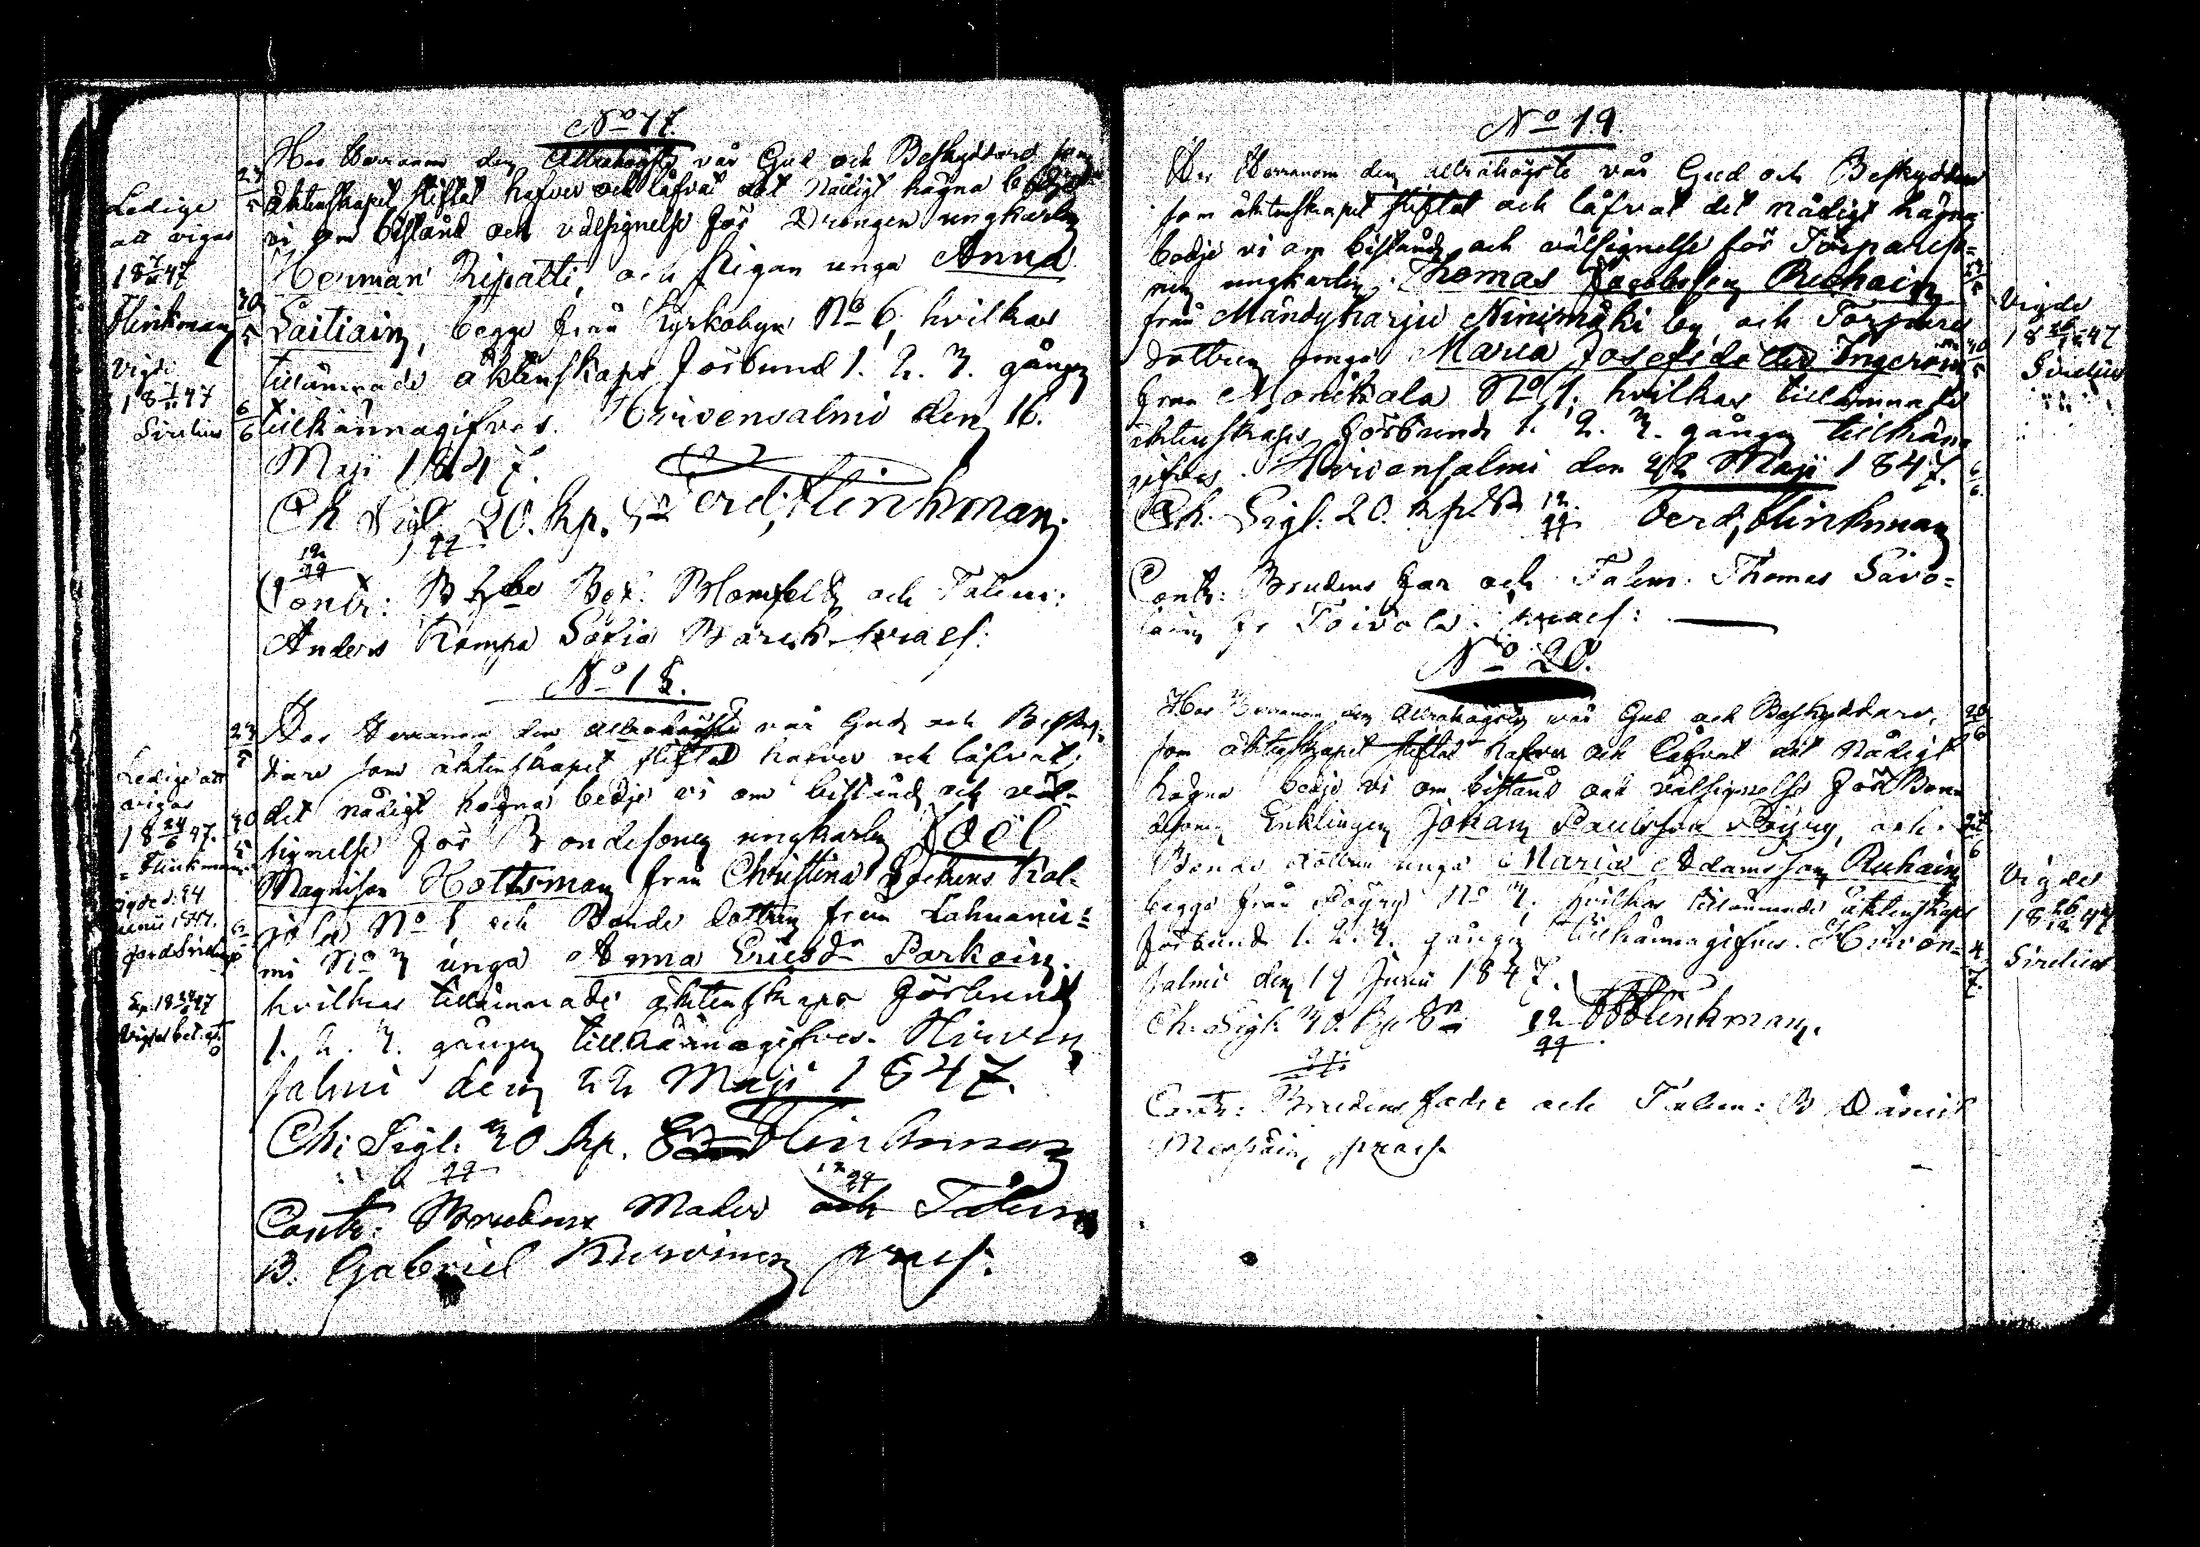 No 17.
Hos Herranom den Allrahögste vår Gud och Beskyddare som
äktenskapet stiftat hafver och låfvat det Nådigt hägna bedje
vi om bistånd och välsignelse för Drängen ungkarlen
Herman Ripatti, och Pigan unga Anna
Laitiain, begge från Kyrkobyn No 6, hvilkas
tillämnade äktenskaps förbund 1. 2. 3. gången
tillkännagifves. Hirvensalmi den 16.
Maji 1847.
Ch Sigl. 20. kp. Sr Ferd. Flinkman.
Contr: Bef. Blomfelt och Talem:
Anders Kompa Sofia praes:
Ledige
att vigas
18 47
Flinkman
Vigde
18 47
Sirelius
23/5
30/5
6/6
No 18.
Hos Herranom den Allrahögste vår Gud och Besky-
dare som äktenskapet stiftat hafver och låfvat
det nådigt hägna bedje vi om bistånd och väl-
signelse för Bondesonen ungkarlen Joel
Magnison Hottsman från Christina Kal-
No 1 och Bonde dottren från Lahnanie-
mi No 3 unga Anna Ericsdr Parkain.
hvilkas tillämnade äktenskaps förbund
1. 2. 3. gången tillkännagifves. Hirven
salmi den 22 Maji 1847.
Ch: Sigl. 30 kp. Sr Flinkman
Contr: Brudens Moder och Talem
B. Gabriel Kurvinen praes.
Ledige att
vigas
18 24/6 47.
Flinkman
23/5
30/5
6/6
No 19.
Hos Herranom den allrahögste vår Gud och Beskyddare
som äktenskapet stiftat och låfvat det nådigt hägna
bedje vi om bistånd och välsignelse för Torpareso-
nen ungkarlen Thomas Jacobsson Ruhain
från Mändyharju Niinimäki by, och Torpare
dottren unga Maria Josefsdr Ingeroin
från Monikala No 1. hvilkas tillämnade
äktenskaps förbund 1. 2. 3. gången tillkänna
gifves. Hirvensalmi den 22 Maji 1847.
Ch. Sigl. 20. kp. Sr Ferd. Flinkman
Contr: Brudens far och Talem: Thomas Savo-
lain fr Toivola. praes:
Vigde
18 47
Sirelius
No 20.
Hos Herranom den Allrahögste vår Gud och Beskyddare,
som äktenskapet stiftat hafver och låfvat det Nådigt
hägna bedje vi om bistånd och välsignelse för Bonde
Enklingen Johan Paulsson Pöyry, och
Bonde dottren unga Maria Adamsson Ruhain
begge från Pöyry No 3, hvilkas tillämnade äktenskaps
förbund 1. 2. 3. gången tillkännagifves. Hirven-
salmi den 19 Junii 1847.
Ch. Sigl. 30. kp Sr Flinkman.
Contr: Brudens fader och Talem: B
praes.
Vigde
18 26/12 47
Sirelius